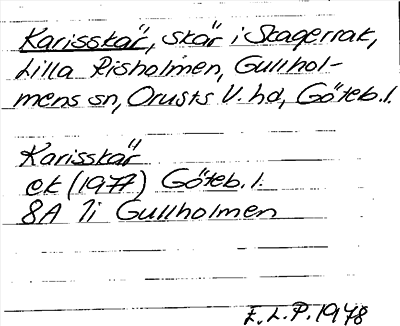 Karisskär, skär i Skagerrak,
Lilla Risholmen, Gullhol-
mens sn, Orusts V. hd, Göteb. l.
Karisskär
ek (1977) Göteb. l.
8A 7i Gullholmen
E.L.P. 1978